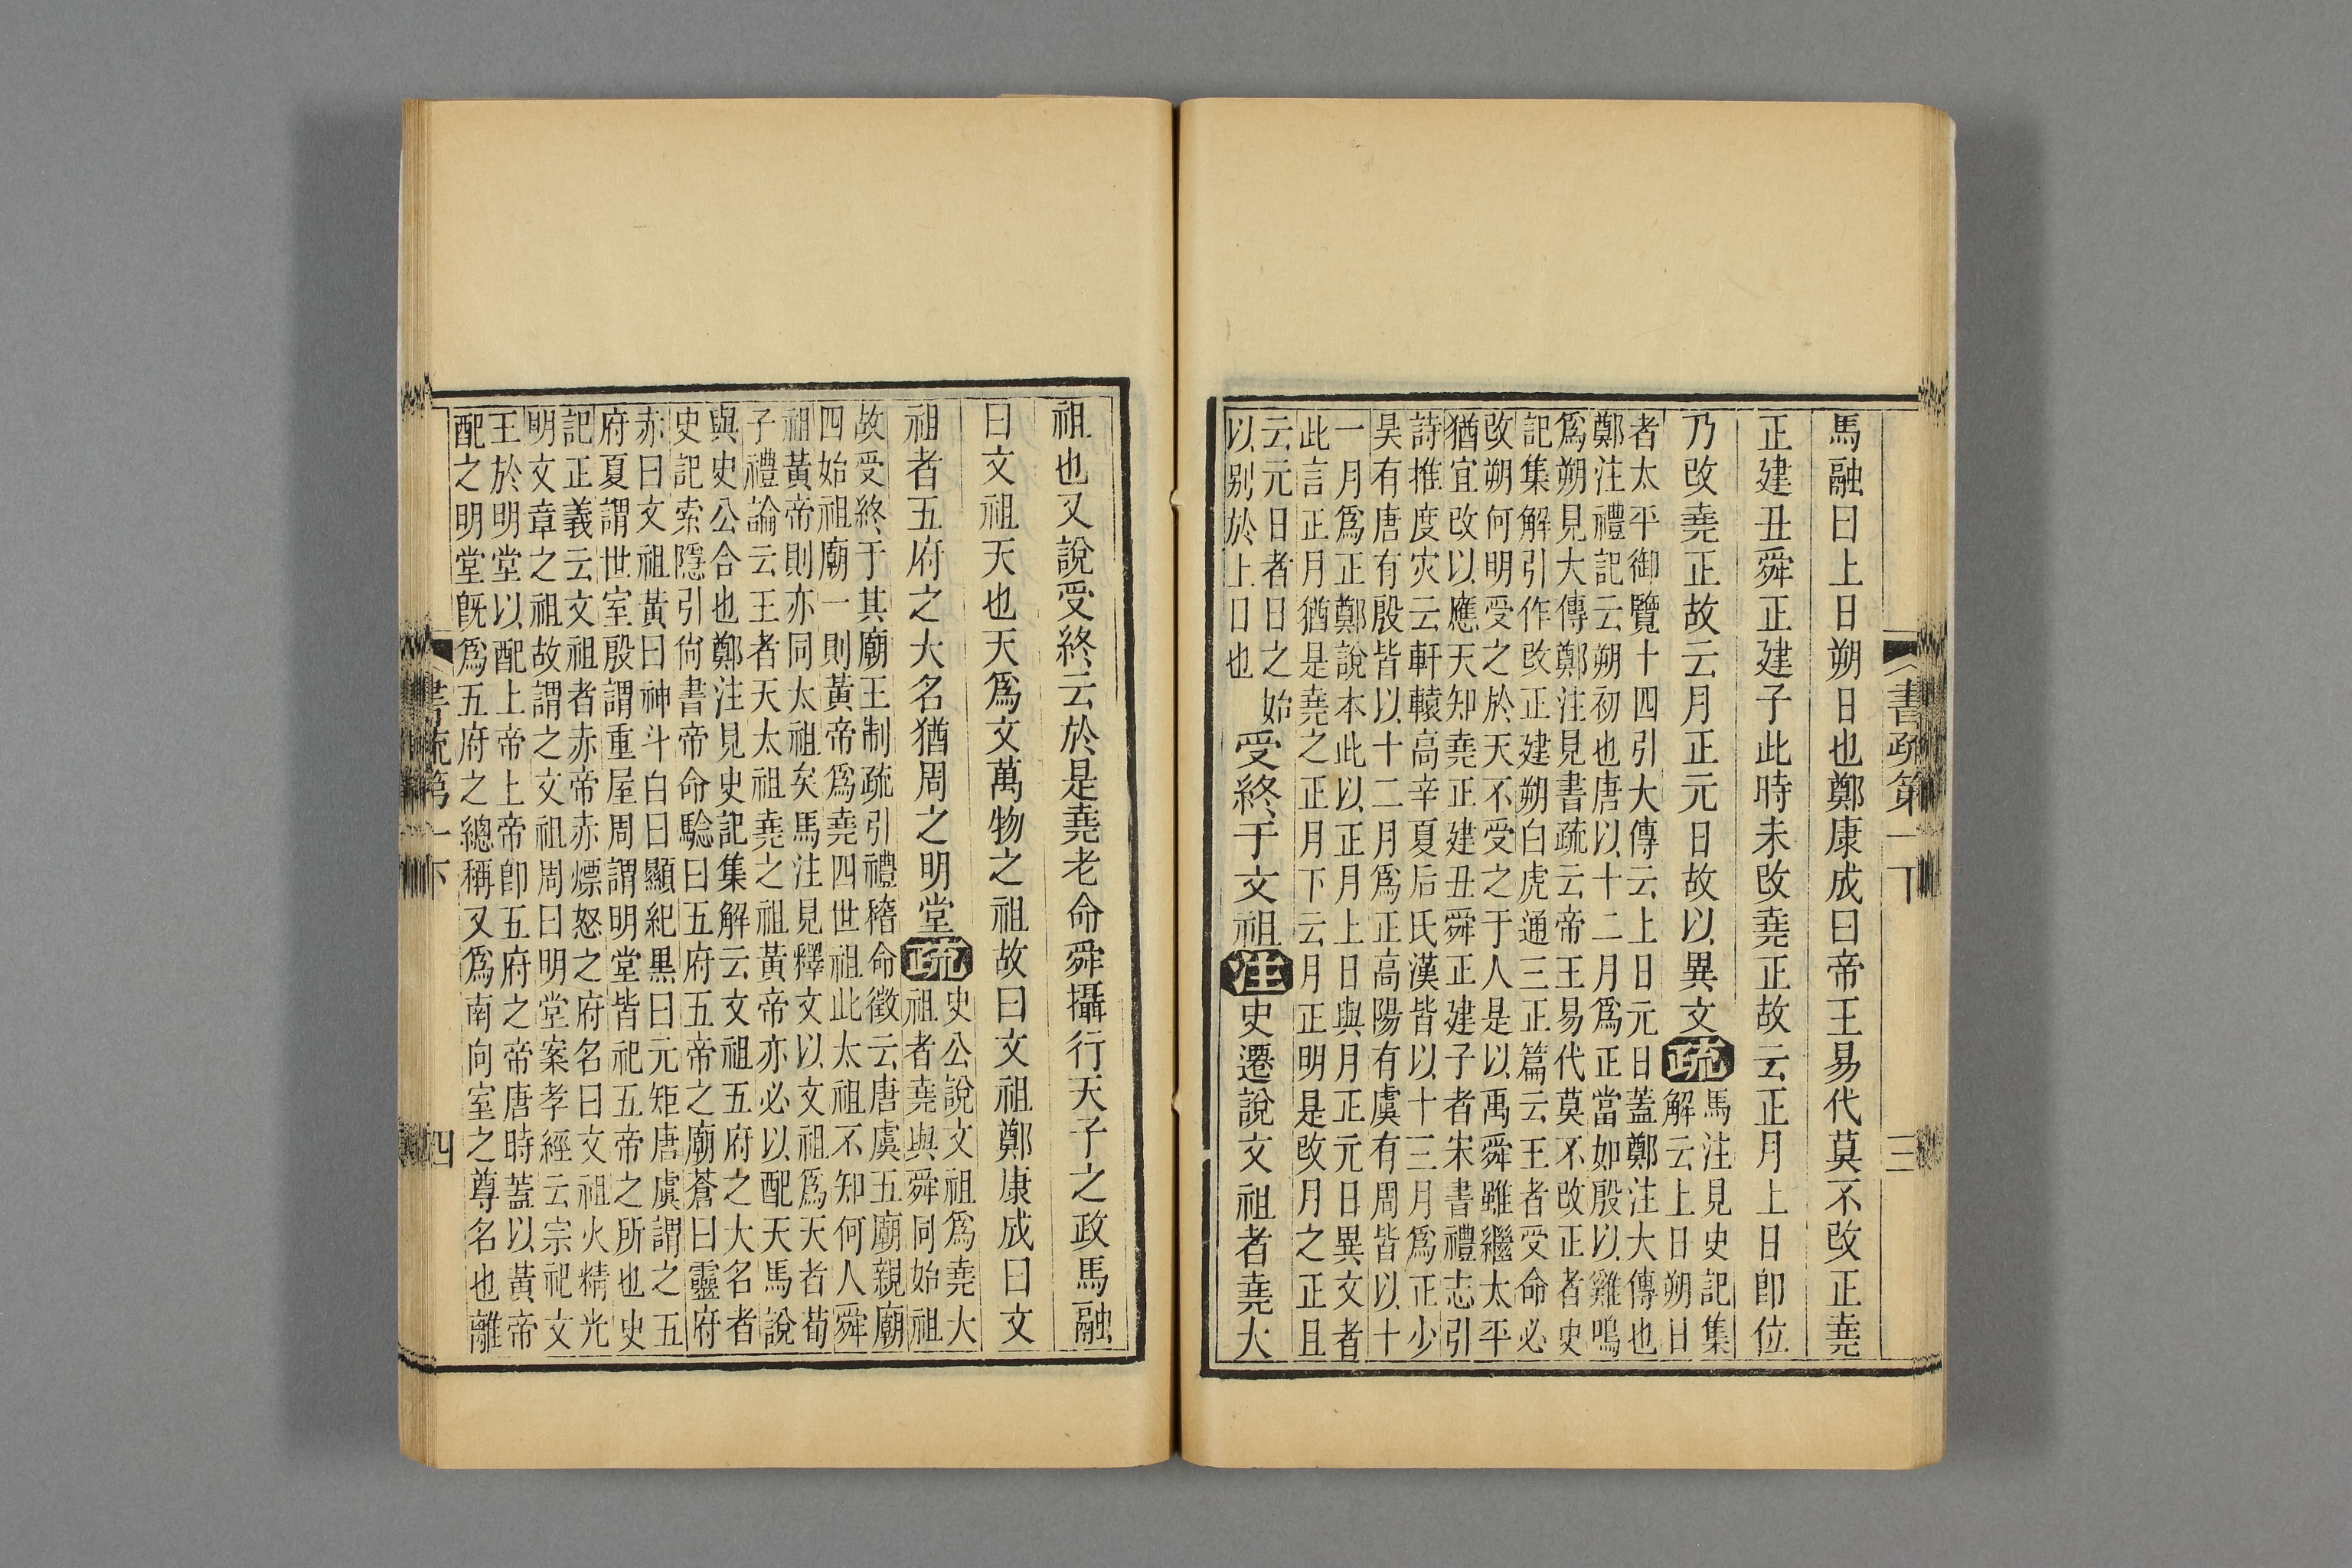 書疏第一下 三
馬融曰上日朔日也鄭康成曰帝王易代莫不改正堯
正建丑舜正建子此時未改堯正故云正月上日卽位
乃改堯正故云月正元日故以異文疏
馬注見史記集
解云上日朔日
者太平御覽十四引大傳云上日元日蓋鄭注大傳也
鄭注禮記云朔初也唐以十二月爲正當如殷以雞鳴
爲朔見大傳鄭注見書疏云帝王易代莫不改正者史
記集解引作改正建朔白虎通三正篇云王者受命必
改朔何明受之於天不受之于人是以禹舜雖繼太平
猶宜改以應天知堯正建丑舜正建子者宋書禮志引
詩推度灾云軒轅高辛夏后氏漢皆以十三月爲正少
昊有唐有殷皆以十二月爲正高陽有虞有周皆以十
一月爲正鄭說本此以正月上日與月正元日異文者
此言正月猶是堯之正月下云月正明是改月之正且
云元日者日之始
以别於上日也
受終于文祖注史遷說文祖者堯大
祖也又說受終云於是堯老命舜攝行天子之政馬融
曰文祖天也天爲文萬物之祖故曰文祖鄭康成曰文
祖者五府之大名猶周之明堂疏
史公說文祖爲堯大
祖者堯與舜同始祖
故受終于其廟王制疏引禮稽命徵云唐虞五廟親廟
四始祖廟一則黃帝爲堯四世祖此太祖不知何人舜
祖黃帝則亦同太祖矣馬注見釋文以文祖爲天者荀
子禮論云王者天太祖堯之祖黃帝亦必以配天馬說
與史公合也鄭注見史記集解云文祖五府之大名者
史記索隱引尙書帝命驗曰五府五帝之廟蒼曰靈府
赤曰文祖黃曰神斗白曰顯紀黑曰元矩唐虞謂之五
府夏謂世室殷謂重屋周謂明堂皆祀五帝之所也史
記正義云文祖者赤帝赤熛怒之府名曰文祖火精光
明文章之祖故謂之文祖周曰明堂案孝經云宗祀文
王於明堂以配上帝上帝卽五府之帝唐時蓋以黃帝
配之明堂旣爲五府之總稱又爲南向室之尊名也離
書疏第一下 四